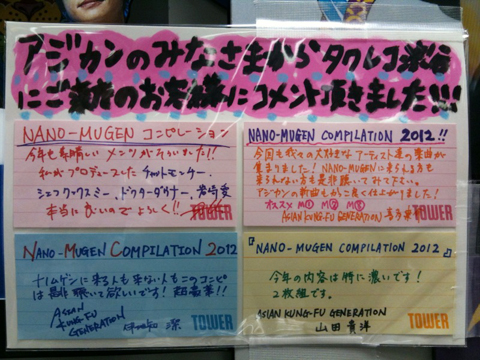 アジカンのみなさまからタワレコ渋谷
にご来店のお客様にコメント頂きました!!!
NANO-MUGEN コンピレーション
今年も素晴しいメンツがそろいました!!
私がプロデュースしたチャットモンチー、
シュノーケル
ドクターダウナー、岩崎愛
本当に良いのでよろしく!!
TOWER
NANO-MUGEN COMPILATION 2012!!
今回も我々の大好きなアーティスト達の楽曲が
集まりました! NANO-MUGENに来られる方も
来られない方も是非聴いてみて下さい。
アジカンの新曲もかっこ良く仕上がりました!
オススメ M① M② M⑧
ASIAN KUNG-FU GENERATION 喜多
TOWER
NANO-MUGEN COMPILATION 2012
ナノムゲンに来る人も来ない人もこのコンピ
は是非聴いて欲しいです! 超豪華!!
ASIAN
KUNG-FU
GENERATION
潔
TOWER
『NANO-MUGEN COMPILATION 2012』
今年の内容は特に濃いです!
2枚組です。
ASIAN KUNG-FU GENERATION
山田貴洋
TOWER